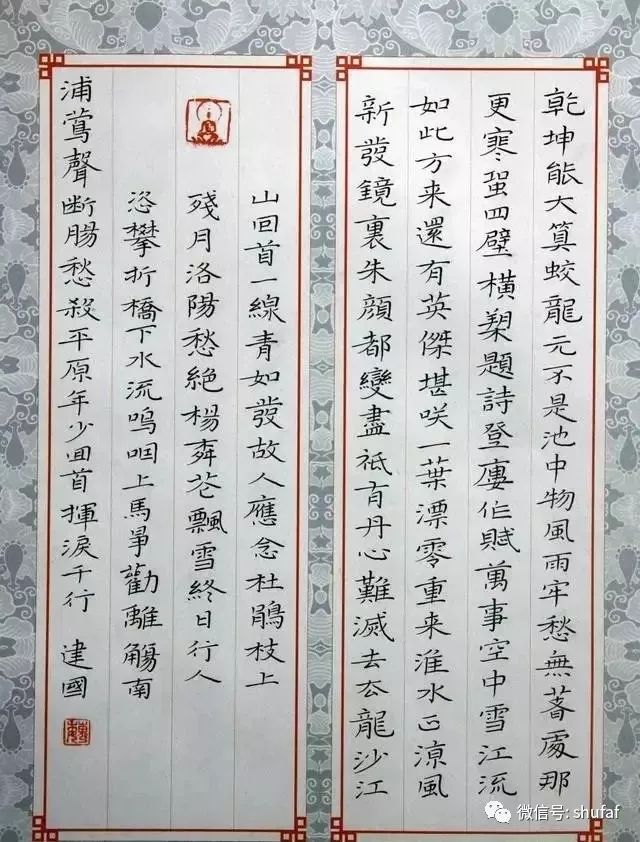 乾坤能大算蛟龍元不是池中物風雨牢愁無著處那
更寒蛩四壁橫槊題詩登樓作賦萬事空中雪江流
如此方来還有英傑堪咲一葉漂零重来淮水正涼風
新發鏡裏朱顏都變盡祇有丹心難滅去去龍沙江
山回首一線青如發故人應念杜鵑枝上
殘月洛陽愁絕楊柳花飄雪終日行人
恣攀折橋下水流嗚咽上馬爭勸離觴南
浦鶯聲断腸愁殺平原年少回首揮淚千行 建國
微信号: shufaf